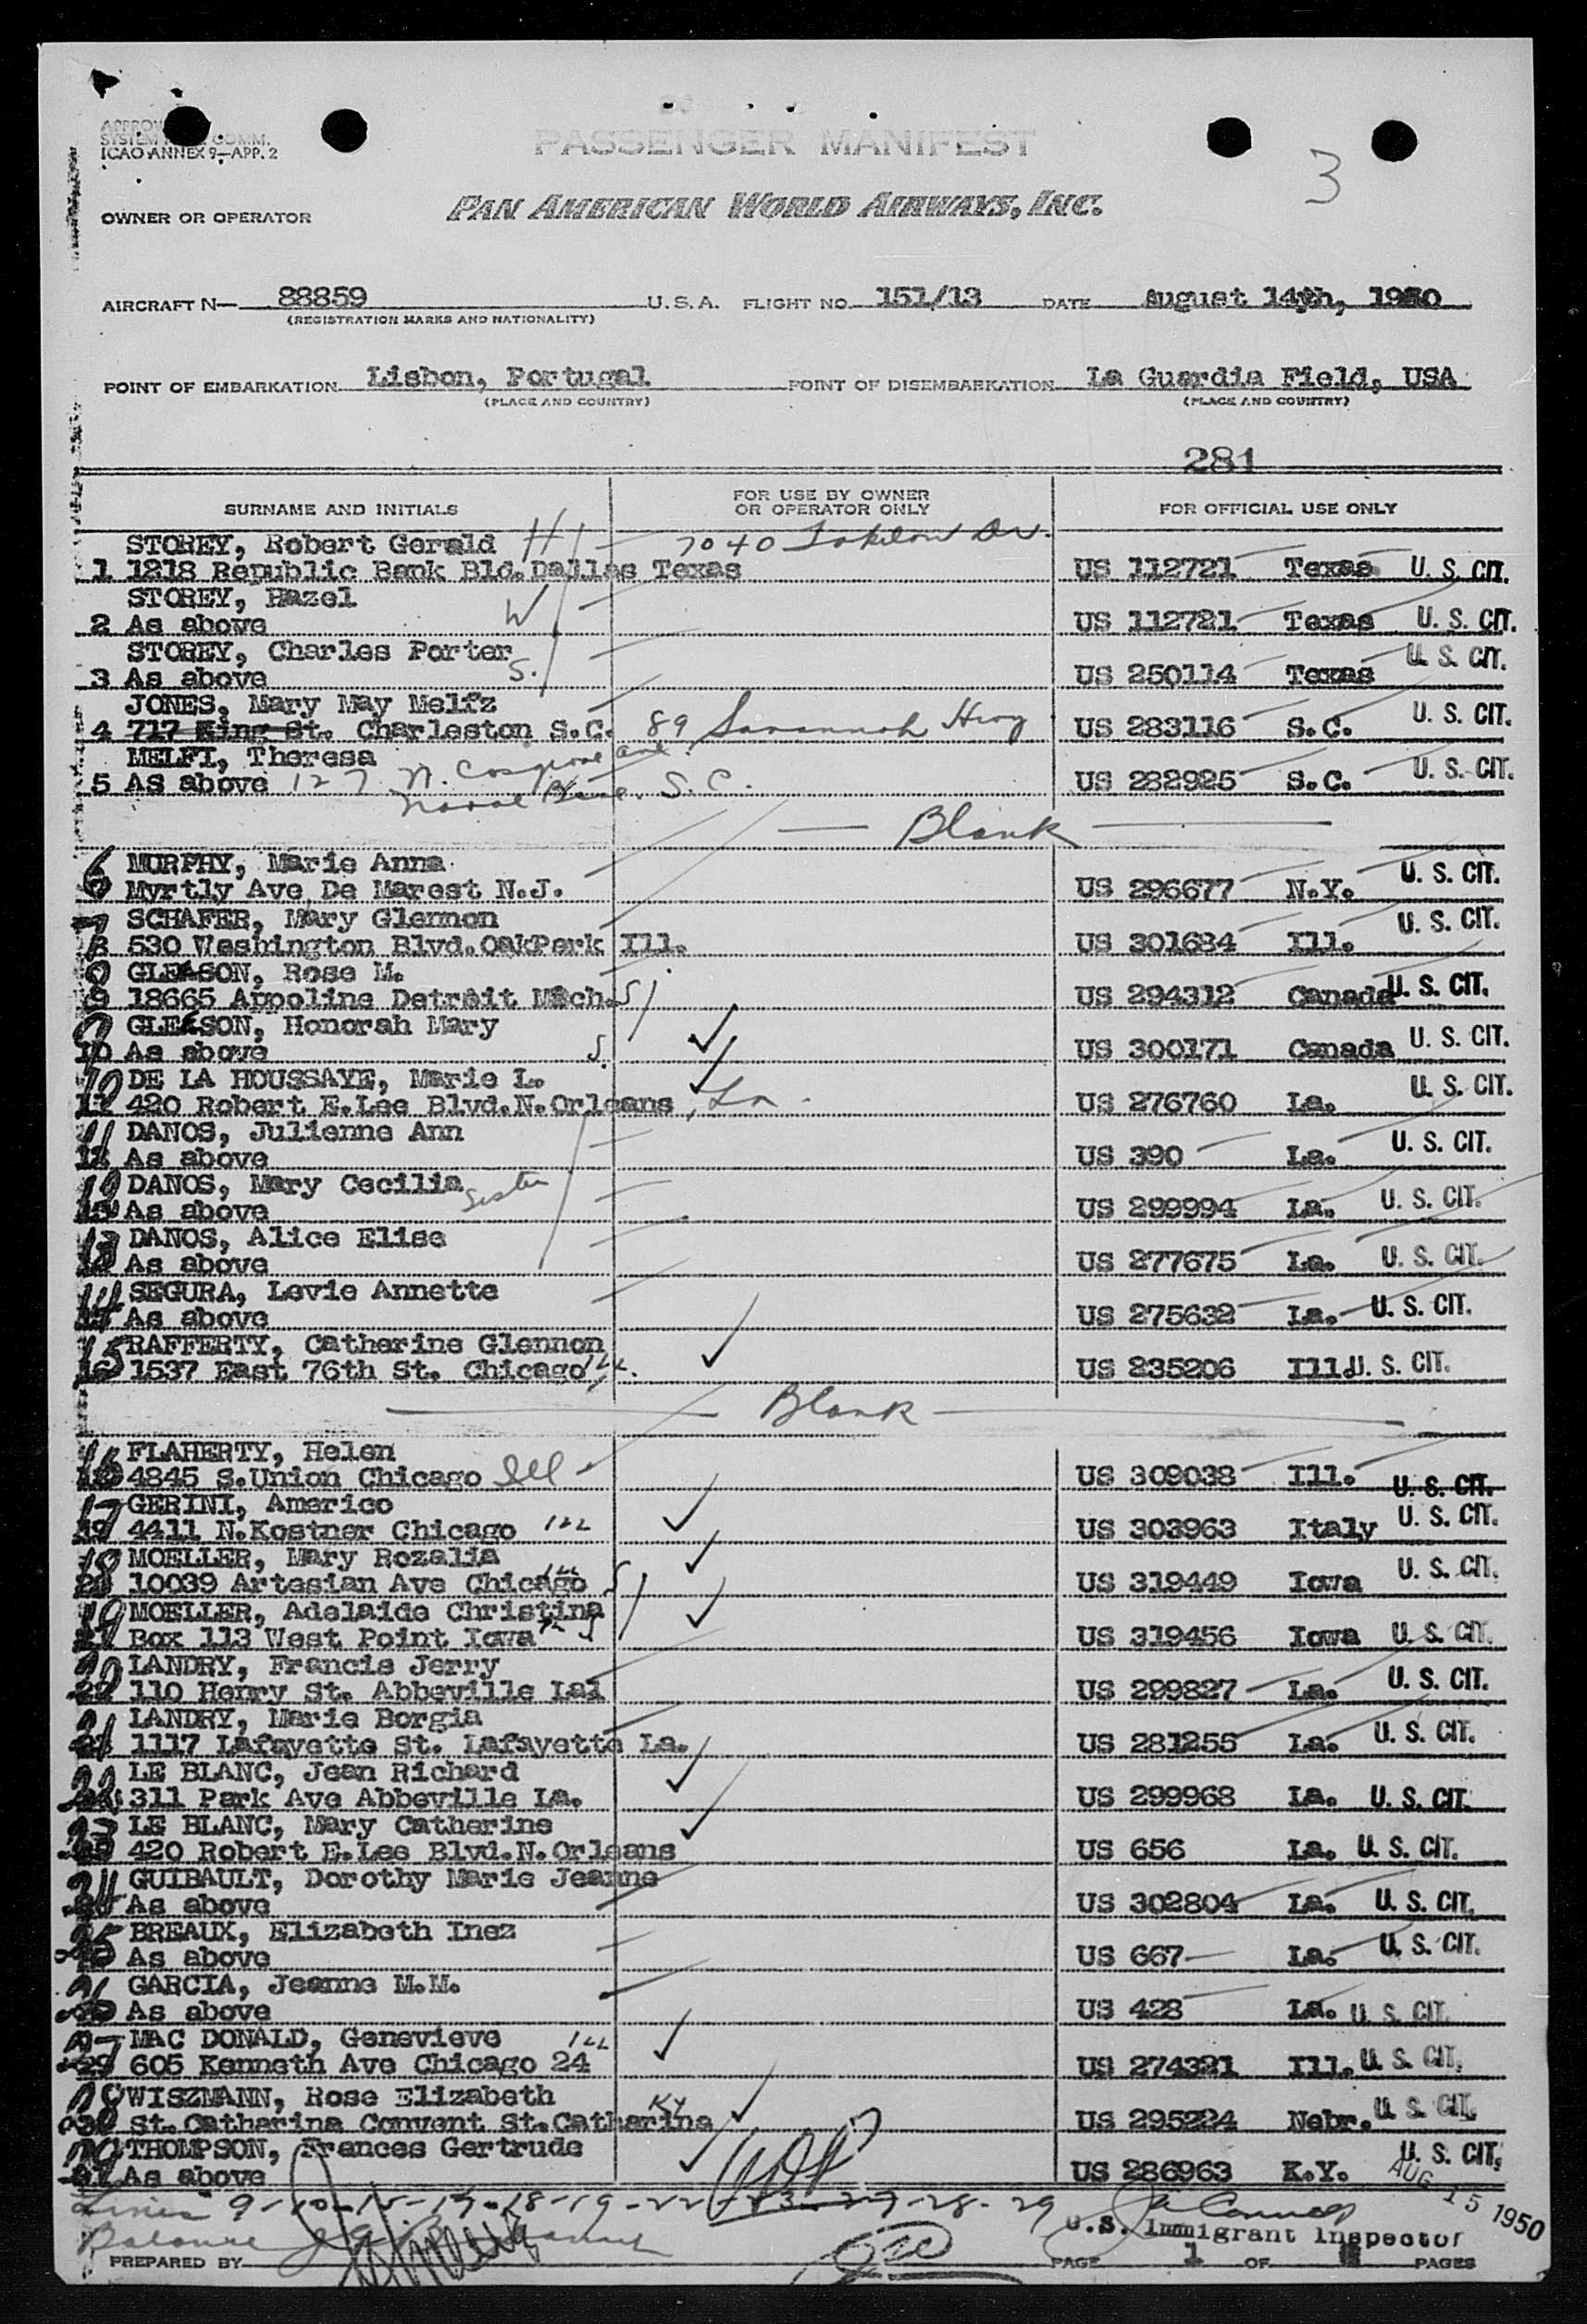 ICAO ANNEX 9—APP. 2
PASSENGER MANIFEST
3
OWNER OR OPERATOR
PAN AMERICAN WORLD AIRWAYS, INC.
AIRCRAFT N— 88859 U.S.A. FLIGHT NO. 151/13 DATE August 14th, 1950
(REGISTRATION MARKS AND NATIONALITY)
POINT OF EMBARKATION Lisbon, Portugal POINT OF DISEMBARKATION La Guardia Field, USA
(PLACE AND COUNTRY) (PLACE AND COUNTRY)
281
SURNAME AND INITIALS FOR USE BY OWNER OR OPERATOR ONLY FOR OFFICIAL USE ONLY
STOREY, Robert Gerald H 7040 Dr.
1 1218 Republic Bank Bld. Dallas Texas US 112721 Texas U. S. CIT.
STOREY, Hazel W
2 As above US 112721 Texas U. S. CIT.
STOREY, Charles Porter S.
3 As above US 250114 Texas U. S. CIT.
JONES, Mary May Melfz
4 717 King St. Charleston S.C. 89 Savannah Hwy US 283116 S.C. U. S. CIT.
MELFI, Theresa
5 As above 127 N. Cosgrove Ave. US 282925 S.C. U. S. CIT.
Naval Base. S.C.
Blank
6 MURPHY, Marie Anna
Myrtly Ave De Marest N.J. US 296677 N.Y. U. S. CIT.
7 SCHAFER, Mary Glennon
8 530 Washington Blvd. OakPark Ill. US 301684 Ill. U. S. CIT.
8 GLEASON, Rose M.
9 18665 Appoline Detroit Mich. S US 294312 Canada U. S. CIT.
9 GLEASON, Honorah Mary
10 As above S US 300171 Canada U. S. CIT.
10 DE LA HOUSSAYE, Marie L.
420 Robert E.Lee Blvd.N.Orleans, La. US 276760 La. U. S. CIT.
11 DANOS, Julienne Ann
As above US 390 La. U. S. CIT.
12 DANOS, Mary Cecilia Sister
As above US 299994 La. U. S. CIT.
13 DANOS, Alice Elise
As above US 277675 La. U. S. CIT.
14 SEGURA, Levie Annette
As above US 275632 La. U. S. CIT.
15 RAFFERTY, Catherine Glennon
16 1537 East 76th St. Chicago Ill. US 235206 Ill. U. S. CIT.
Blank
16 FLAHERTY, Helen
4845 S.Union Chicago Ill US 309038 Ill. U. S. CIT.
17 GERINI, Americo
19 4411 N.Kostner Chicago Ill US 303963 Italy U. S. CIT.
18 MOELLER, Mary Rozalia
20 10039 Artesian Ave Chicago Ill S US 319449 Iowa U. S. CIT.
19 MOELLER, Adelaide Christina
21 Box 113 West Point Iowa S US 319456 Iowa U. S. CIT.
20 LANDRY, Francis Jerry
22 110 Henry St. Abbeville Lal US 299827 La. U. S. CIT.
21 LANDRY, Marie Borgia
1117 Lafayette St. Lafayette La. US 281255 La. U. S. CIT.
22 LE BLANC, Jean Richard
311 Park Ave Abbeville La. US 299968 La. U. S. CIT.
23 LE BLANC, Mary Catherine
420 Robert E.Lee Blvd.N.Orleans US 656 La. U. S. CIT.
24 GUIBAULT, Dorothy Marie Jeanne
As above US 302804 La. U. S. CIT.
25 BREAUX, Elizabeth Inez
As above US 667 La. U. S. CIT.
26 GARCIA, Jeanne M.M.
As above US 428 La. U. S. CIT.
27 MAC DONALD, Genevieve Ill
29 605 Kenneth Ave Chicago 24 US 274321 Ill. U. S. CIT.
28 WISZMANN, Rose Elizabeth Ky
30 St.Catharina Convent St.Catharina US 295224 Nebr. U. S. CIT.
29 THOMPSON, Frances Gertrude
31 As above US 286963 K.Y. U. S. CIT.
Lines 9-10-15-17-18-19-22-23-27-28-29
AUG 15 1950
U.S. Immigrant Inspector
Balance
PREPARED BY PAGE 1 OF PAGES